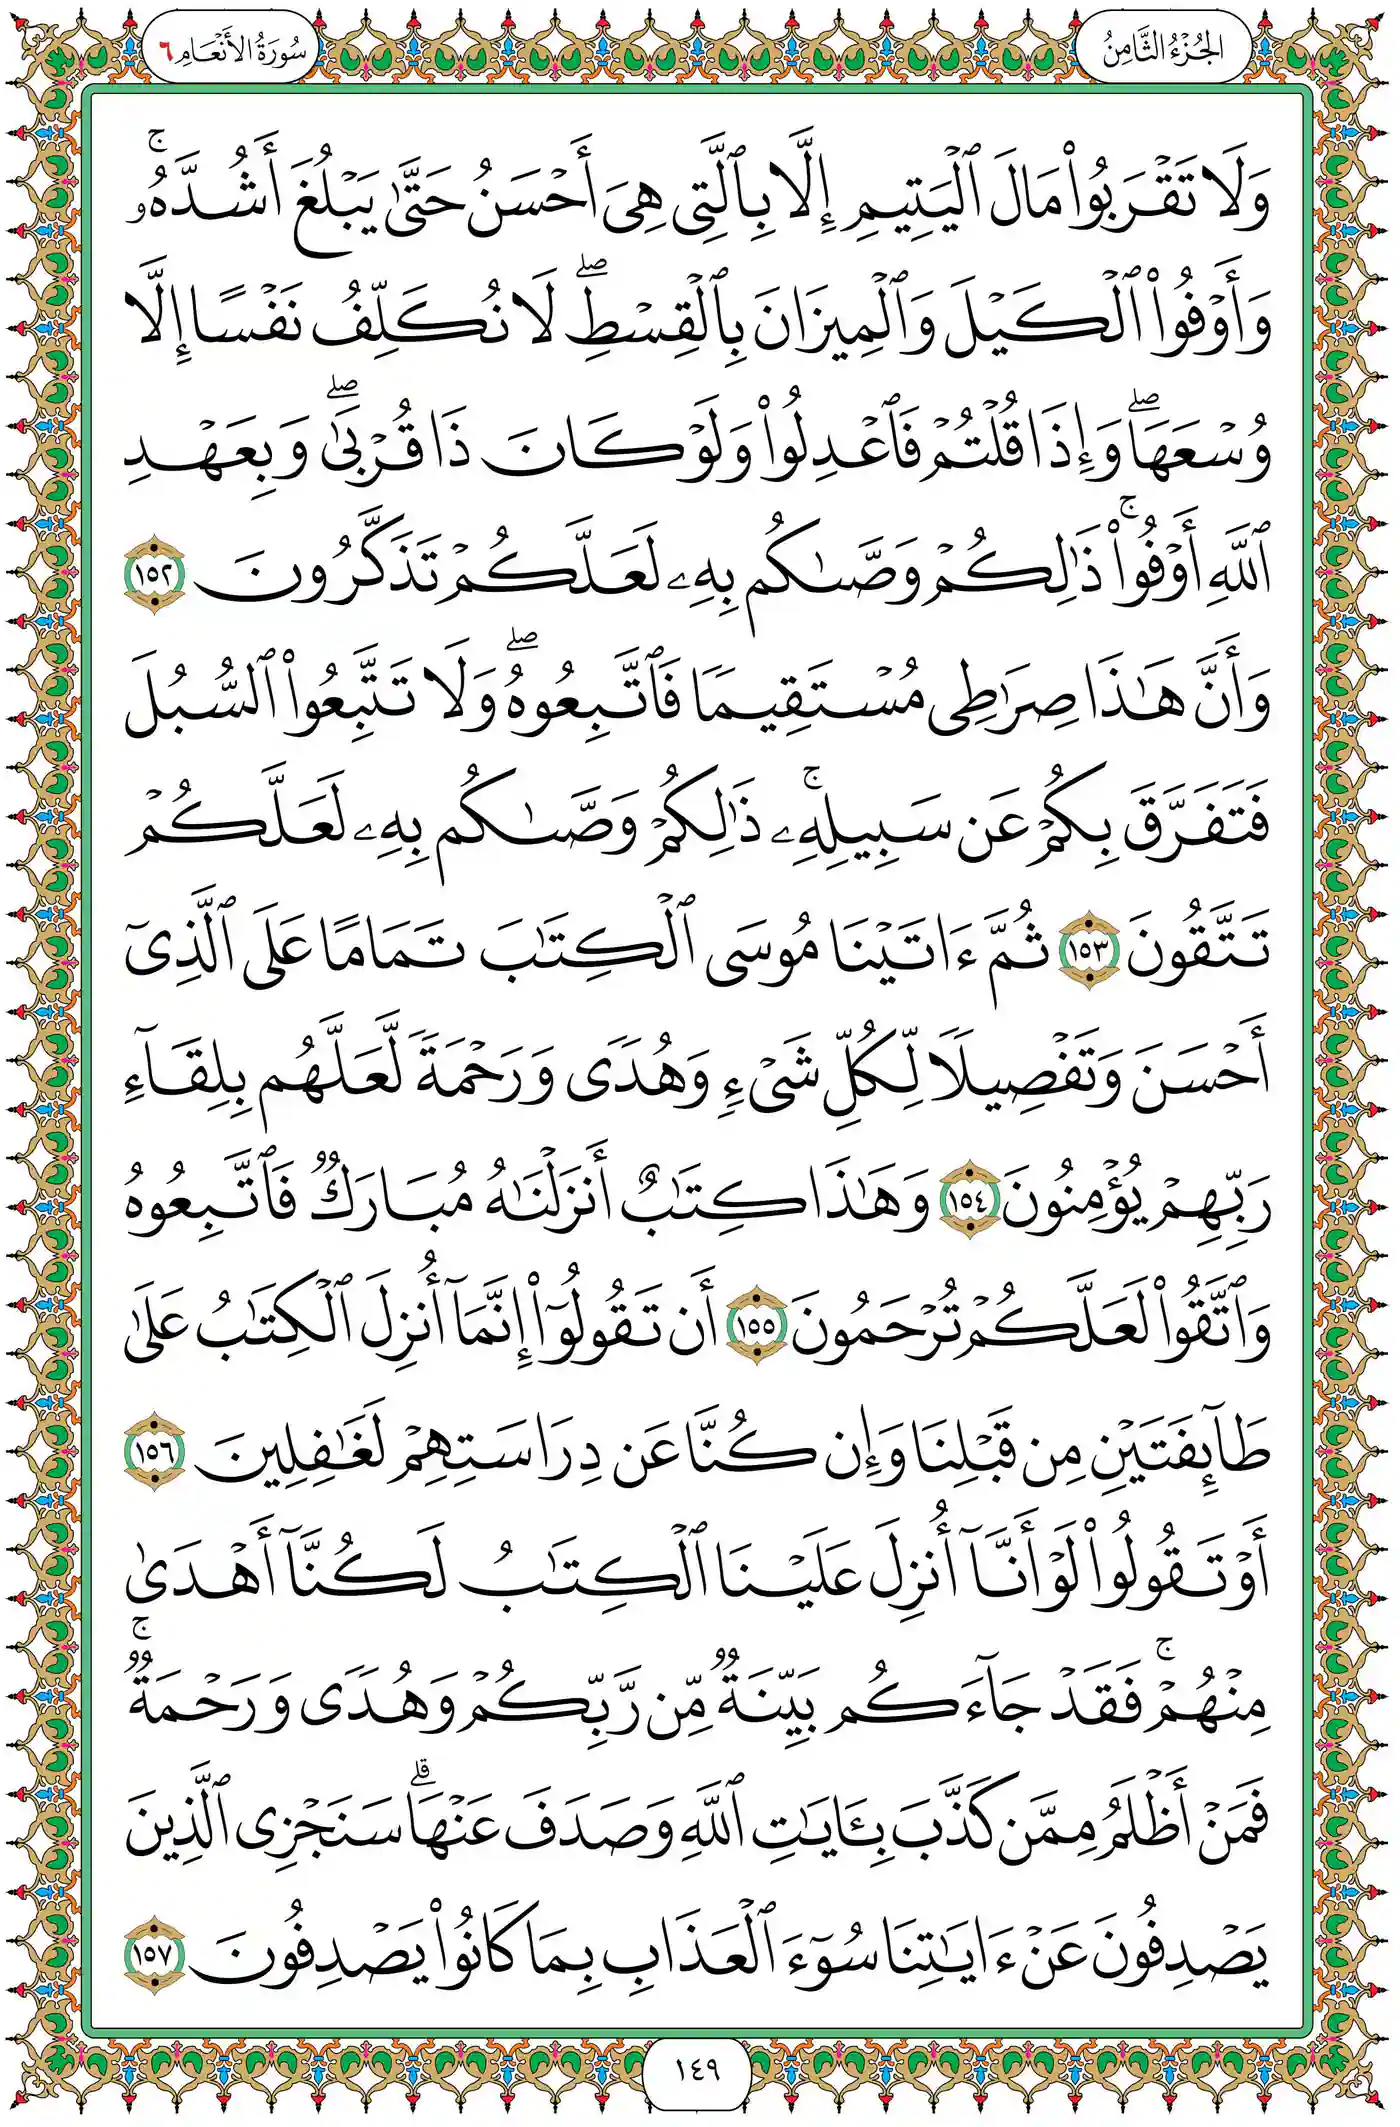 الجُزْءُ الثَّامِنُ
سُورَةُ الأَنْعَامِ ٦
وَلَا تَقْرَبُوا۟ مَالَ ٱلْيَتِيمِ إِلَّا بِٱلَّتِى هِىَ أَحْسَنُ حَتَّىٰ يَبْلُغَ أَشُدَّهُۥ ۚ
وَأَوْفُوا۟ ٱلْكَيْلَ وَٱلْمِيزَانَ بِٱلْقِسْطِ ۖ لَا نُكَلِّفُ نَفْسًا إِلَّا
وُسْعَهَا ۖ وَإِذَا قُلْتُمْ فَٱعْدِلُوا۟ وَلَوْ كَانَ ذَا قُرْبَىٰ ۖ وَبِعَهْدِ
ٱللَّهِ أَوْفُوا۟ ۚ ذَٰلِكُمْ وَصَّىٰكُم بِهِۦ لَعَلَّكُمْ تَذَكَّرُونَ ١٥٢
وَأَنَّ هَٰذَا صِرَٰطِى مُسْتَقِيمًا فَٱتَّبِعُوهُ ۖ وَلَا تَتَّبِعُوا۟ ٱلسُّبُلَ
فَتَفَرَّقَ بِكُمْ عَن سَبِيلِهِۦ ۚ ذَٰلِكُمْ وَصَّىٰكُم بِهِۦ لَعَلَّكُمْ
تَتَّقُونَ ١٥٣ ثُمَّ ءَاتَيْنَا مُوسَى ٱلْكِتَٰبَ تَمَامًا عَلَى ٱلَّذِىٓ
أَحْسَنَ وَتَفْصِيلًا لِّكُلِّ شَىْءٍ وَهُدًى وَرَحْمَةً لَّعَلَّهُم بِلِقَآءِ
رَبِّهِمْ يُؤْمِنُونَ ١٥٤ وَهَٰذَا كِتَٰبٌ أَنزَلْنَٰهُ مُبَارَكٌ فَٱتَّبِعُوهُ
وَٱتَّقُوا۟ لَعَلَّكُمْ تُرْحَمُونَ ١٥٥ أَن تَقُولُوٓا۟ إِنَّمَآ أُنزِلَ ٱلْكِتَٰبُ عَلَىٰ
طَآئِفَتَيْنِ مِن قَبْلِنَا وَإِن كُنَّا عَن دِرَاسَتِهِمْ لَغَٰفِلِينَ ١٥٦
أَوْ تَقُولُوا۟ لَوْ أَنَّآ أُنزِلَ عَلَيْنَا ٱلْكِتَٰبُ لَكُنَّآ أَهْدَىٰ
مِنْهُمْ ۚ فَقَدْ جَآءَكُم بَيِّنَةٌ مِّن رَّبِّكُمْ وَهُدًى وَرَحْمَةٌ ۚ
فَمَنْ أَظْلَمُ مِمَّن كَذَّبَ بِـَٔايَٰتِ ٱللَّهِ وَصَدَفَ عَنْهَا ۗ سَنَجْزِى ٱلَّذِينَ
يَصْدِفُونَ عَنْ ءَايَٰتِنَا سُوٓءَ ٱلْعَذَابِ بِمَا كَانُوا۟ يَصْدِفُونَ ١٥٧
١٤٩